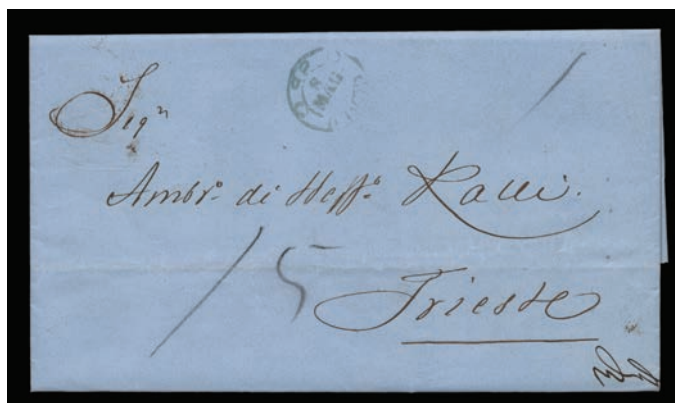 8
MAG
Sigri
Ambro. di Steffo. Ralli.
15
Trieste